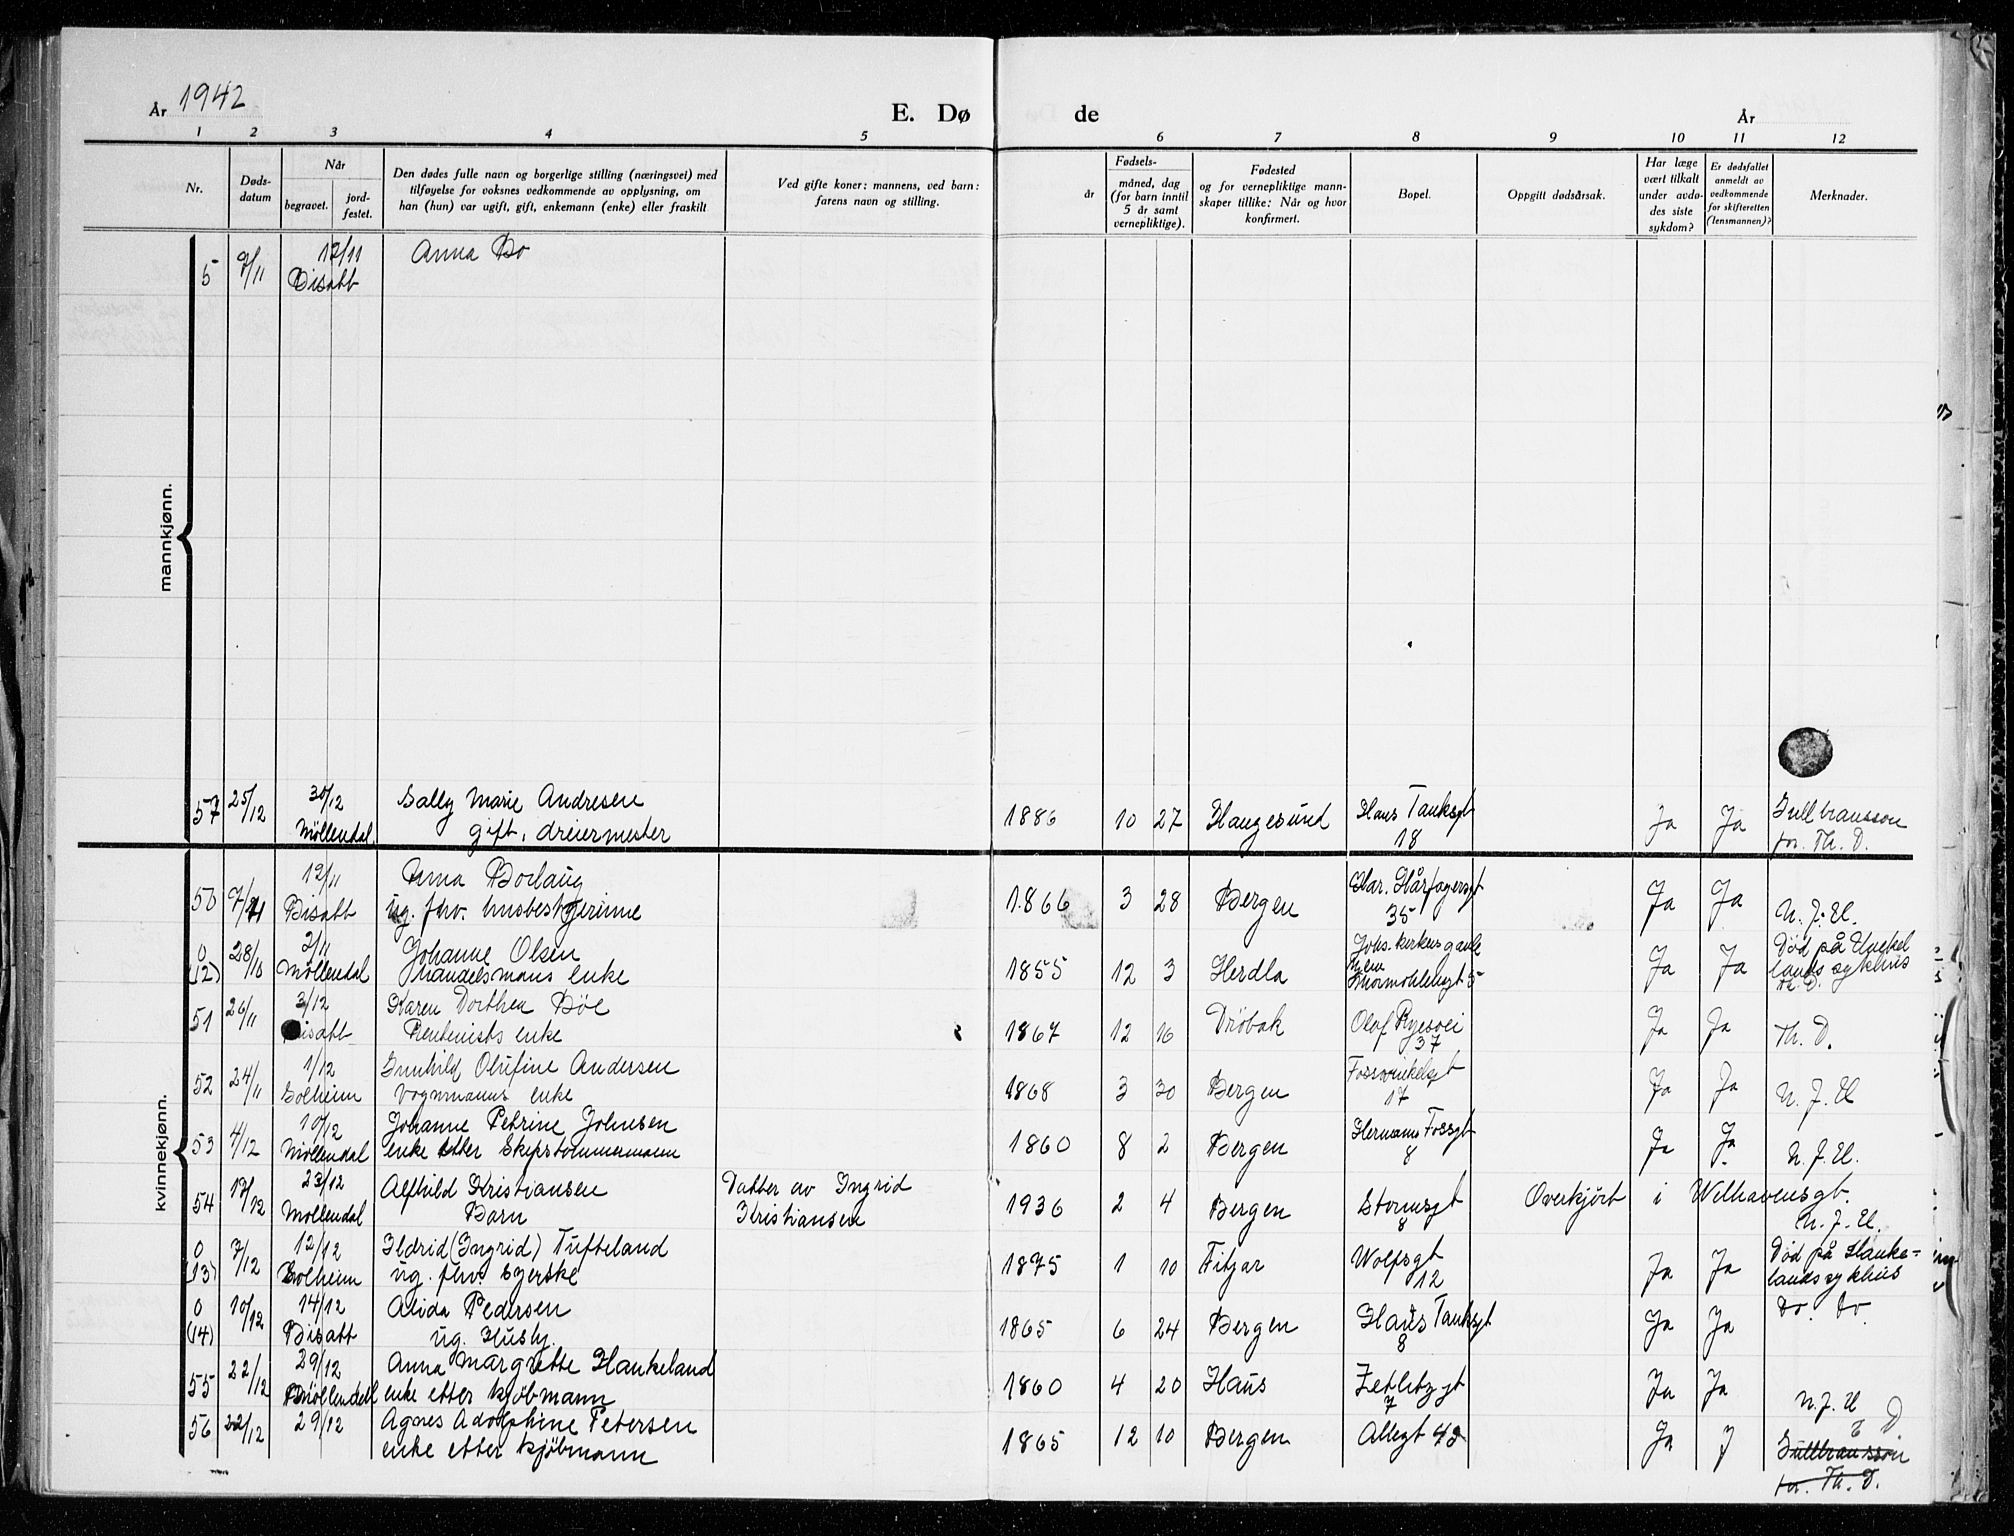 År 1942
E. Dø de
År
1 2 3 4 5 6 7 8 9 10 11 12
Nr.
Døds-
datum
Når
begravet.
jord-
festet.
Den dødes fulle navn og borgerlige stilling (næringsvei) med
tilføyelse for voksnes vedkommende av opplysning, om
han (hun) var ugift, gift, enkemann (enke) eller fraskilt
Ved gifte koner: mannens, ved barn:
farens navn og stilling.
Fødsels-
år
måned, dag
(for barn inntil
5 år samt
vernepliktige).
Fødested
og for vernepliktige mann-
skaper tillike: Når og hvor
konfirmert.
Bopel.
Oppgitt dødsårsak.
Har læge
vært tilkalt
under avdø-
des siste
sykdom?
Er dødsfallet
anmeldt av
vedkommende
for skifteretten
(lensmannen)?
Merknader.
mannkjønn.
5 7/11 12/11 Anna Bo
Bisatt
57 25/12 30/12 Sally Marie Andresen 1886 10 27 Haugesund Hans Tanksgt Ja Ja Gulbransson
Möllendal. gift, dreiermester 18 for. Th. D.
kvinnekjønn.
50 7/11 12/11 Anna Borlaug 1866 3 28 Bergen Har. Hårfagersgt Ja Ja
Bisatt ug. fhv. husbestyrerinne 35 N. J. El.
0 28/10 2/11 Johanne Olsen 1855 12 3 Herdla Ja Ja Død på
(12) Möllendal Handelsmans enke lands sykhus
Th. D.
51 26/11 3/12 Karen Dorthea Böe 1867 12 16 Dröbak Olaf Ryesvei Ja Ja Th. D.
Bisatt Rentenists enke 37
52 24/11 1/12 Gunhild Olufine Andersen 1868 3 30 Bergen Fosswinkelsgt Ja Ja N. J. El
Solheim Vognmanns enke 17
53 4/12 10/12 Johanne Petrine Johnsen 1860 8 2 Bergen Hermann Fossgt Ja Ja
Möllendal enke etter Skipstömmermann 8 N. J. El.
54 17/12 23/12 Alfhild Kristiansen Datter av Ingrid 1936 2 4 Bergen Stormsgt Overkjört i Welhavensgt.
Möllendal Barn Kristiansen 8 N. J. El.
0 7/12 12/12 Ildrid (Ingrid) Tufteland 1875 1 10 Fitjar Wolfsgt Ja Ja Död på Hauke-
(13) Solheim ug. fhv. syerske 12 lands sykhus
0 10/12 14/12 Alida Pedersen 1865 6 24 Bergen Hans Tanksgt Ja Ja Do. Do.
(14) Bisatt ug. Husby. 8
55 22/12 29/12 Anna Margrette Haukeland 1860 4 20 Haus Zetlitzgt Ja Ja
Möllendal enke etter kjöbmann 7 N. J. El
56 22/12 29/12 Agnes Adolphine Petersen 1865 12 10 Bergen Allegt Ja J E D
enke etter kjöbmann Gullbransson
for. Th. D.